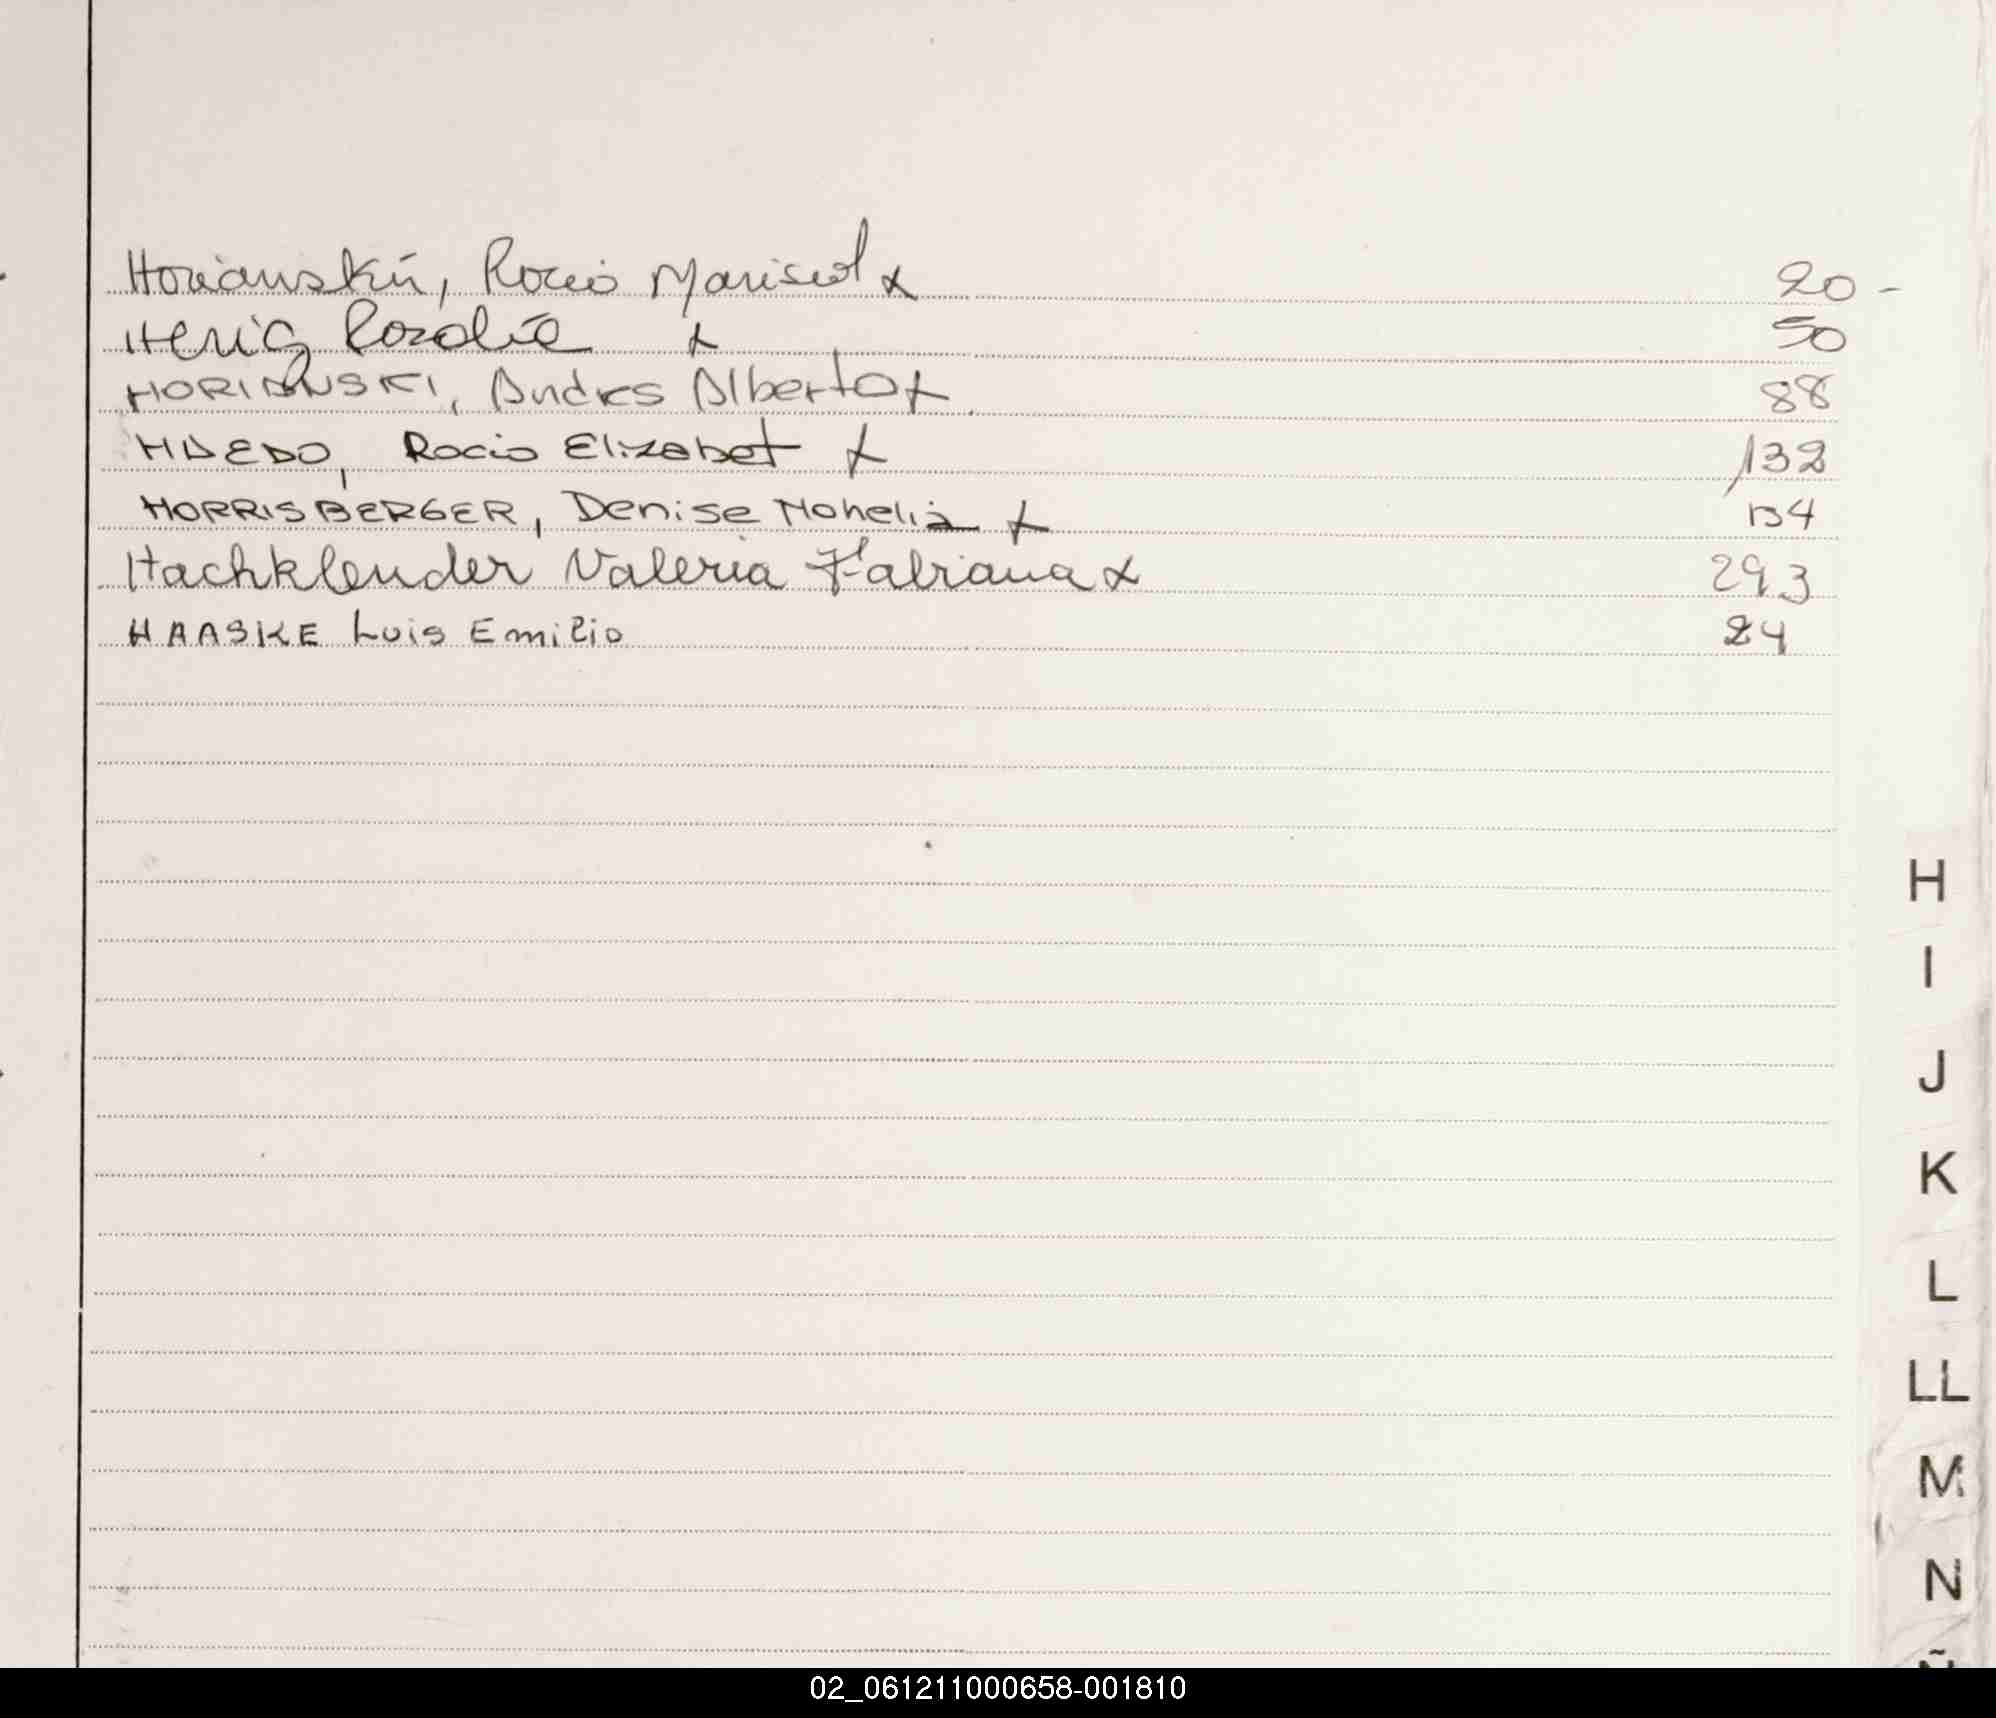 Horianskii, Rocio Marisol x 20 -
Herig Rosalia x 50
HORIANSKI, Andres Alberto x 88
HAEDO, Rocio Elizabet x 132
HORRISBERGER, Denise Nohelia x 134
Hachklender Valeria Fabiana x 293
HAASKE Luis Emilio 24
H
I
J
K
L
LL
M
N
Ñ
02_061211000658-001810